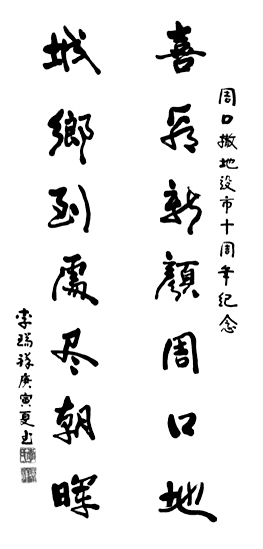 周口撤地设市十周年纪念
喜看新颜周口地
城鄉到處尽朝暉
李瑞祥庚寅夏书